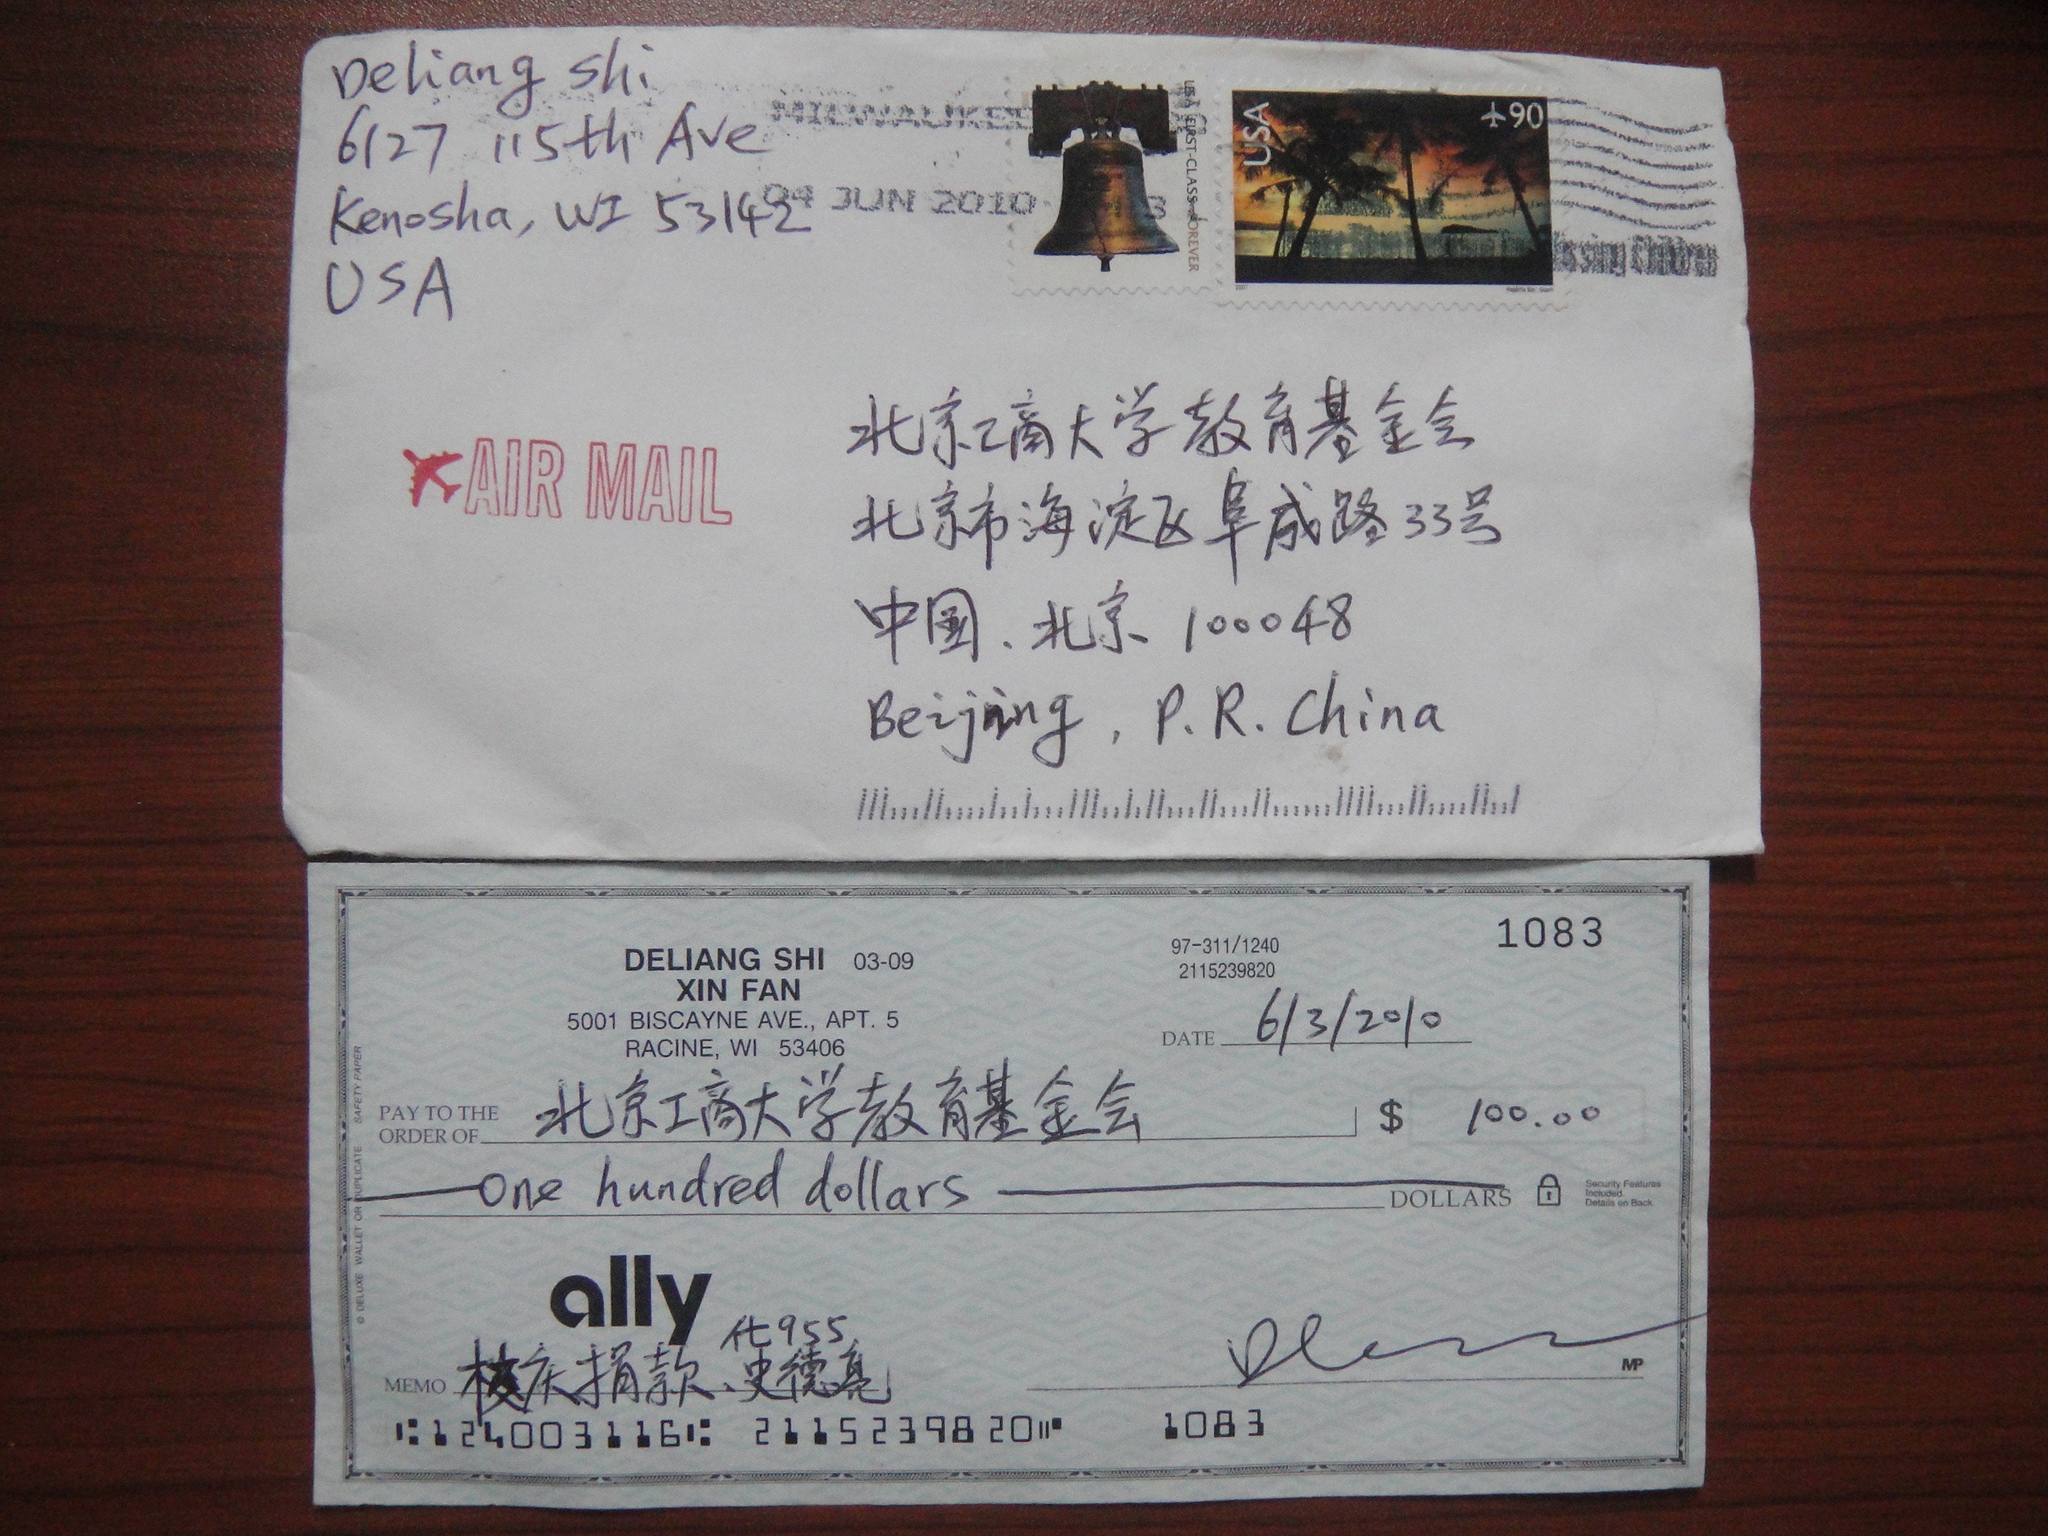 Deliang Shi
6127 115th Ave
Kenosha, WI 53142
USA
MILWAUKEE
04 JUN 2010
USA FIRST-CLASS FOREVER
USA
90
Missing Children
AIR MAIL
北京工商大学教育基金会
北京市海淀区阜成路33号
中国、北京 100048
Beijing, P.R. China
1083
DELIANG SHI 03-09
XIN FAN
5001 BISCAYNE AVE., APT. 5
RACINE, WI 53406
97-311/1240
2115239820
DATE 6/3/2010
PAY TO THE
ORDER OF 北京工商大学教育基金会 $ 100.00
One hundred dollars DOLLARS
Security Features
Included.
Details on Back.
© DELUXE WALLET OR DUPLICATE SAFETY PAPER
ally
化955
MEMO 校庆捐款、史德亮
MP
124003116 2115239820 1083